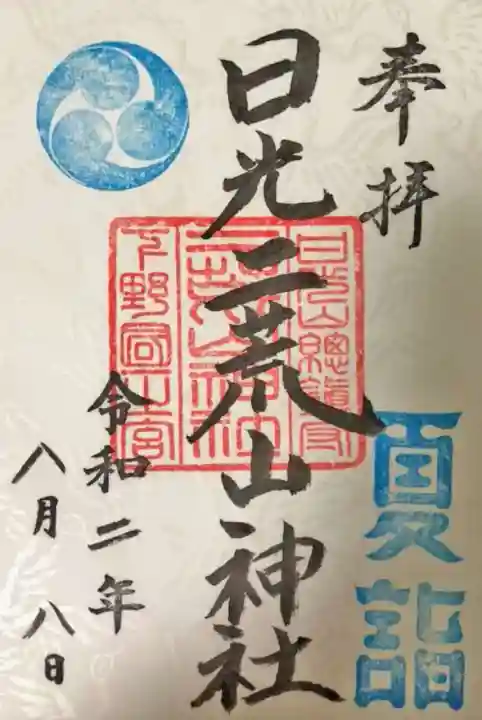 奉拝
日光二荒山神社
日光山總鎮守
二荒山神社
下野國一宮
夏詣
令和二年
八月八日